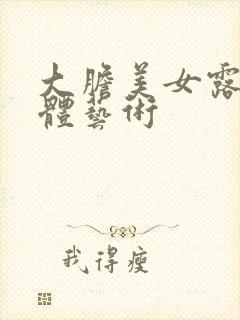 大膽美女露
體藝術
我得瘦